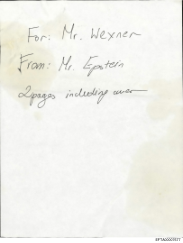 For: Mr. Wexner
From: Mr. Epstein
2 pages including cover